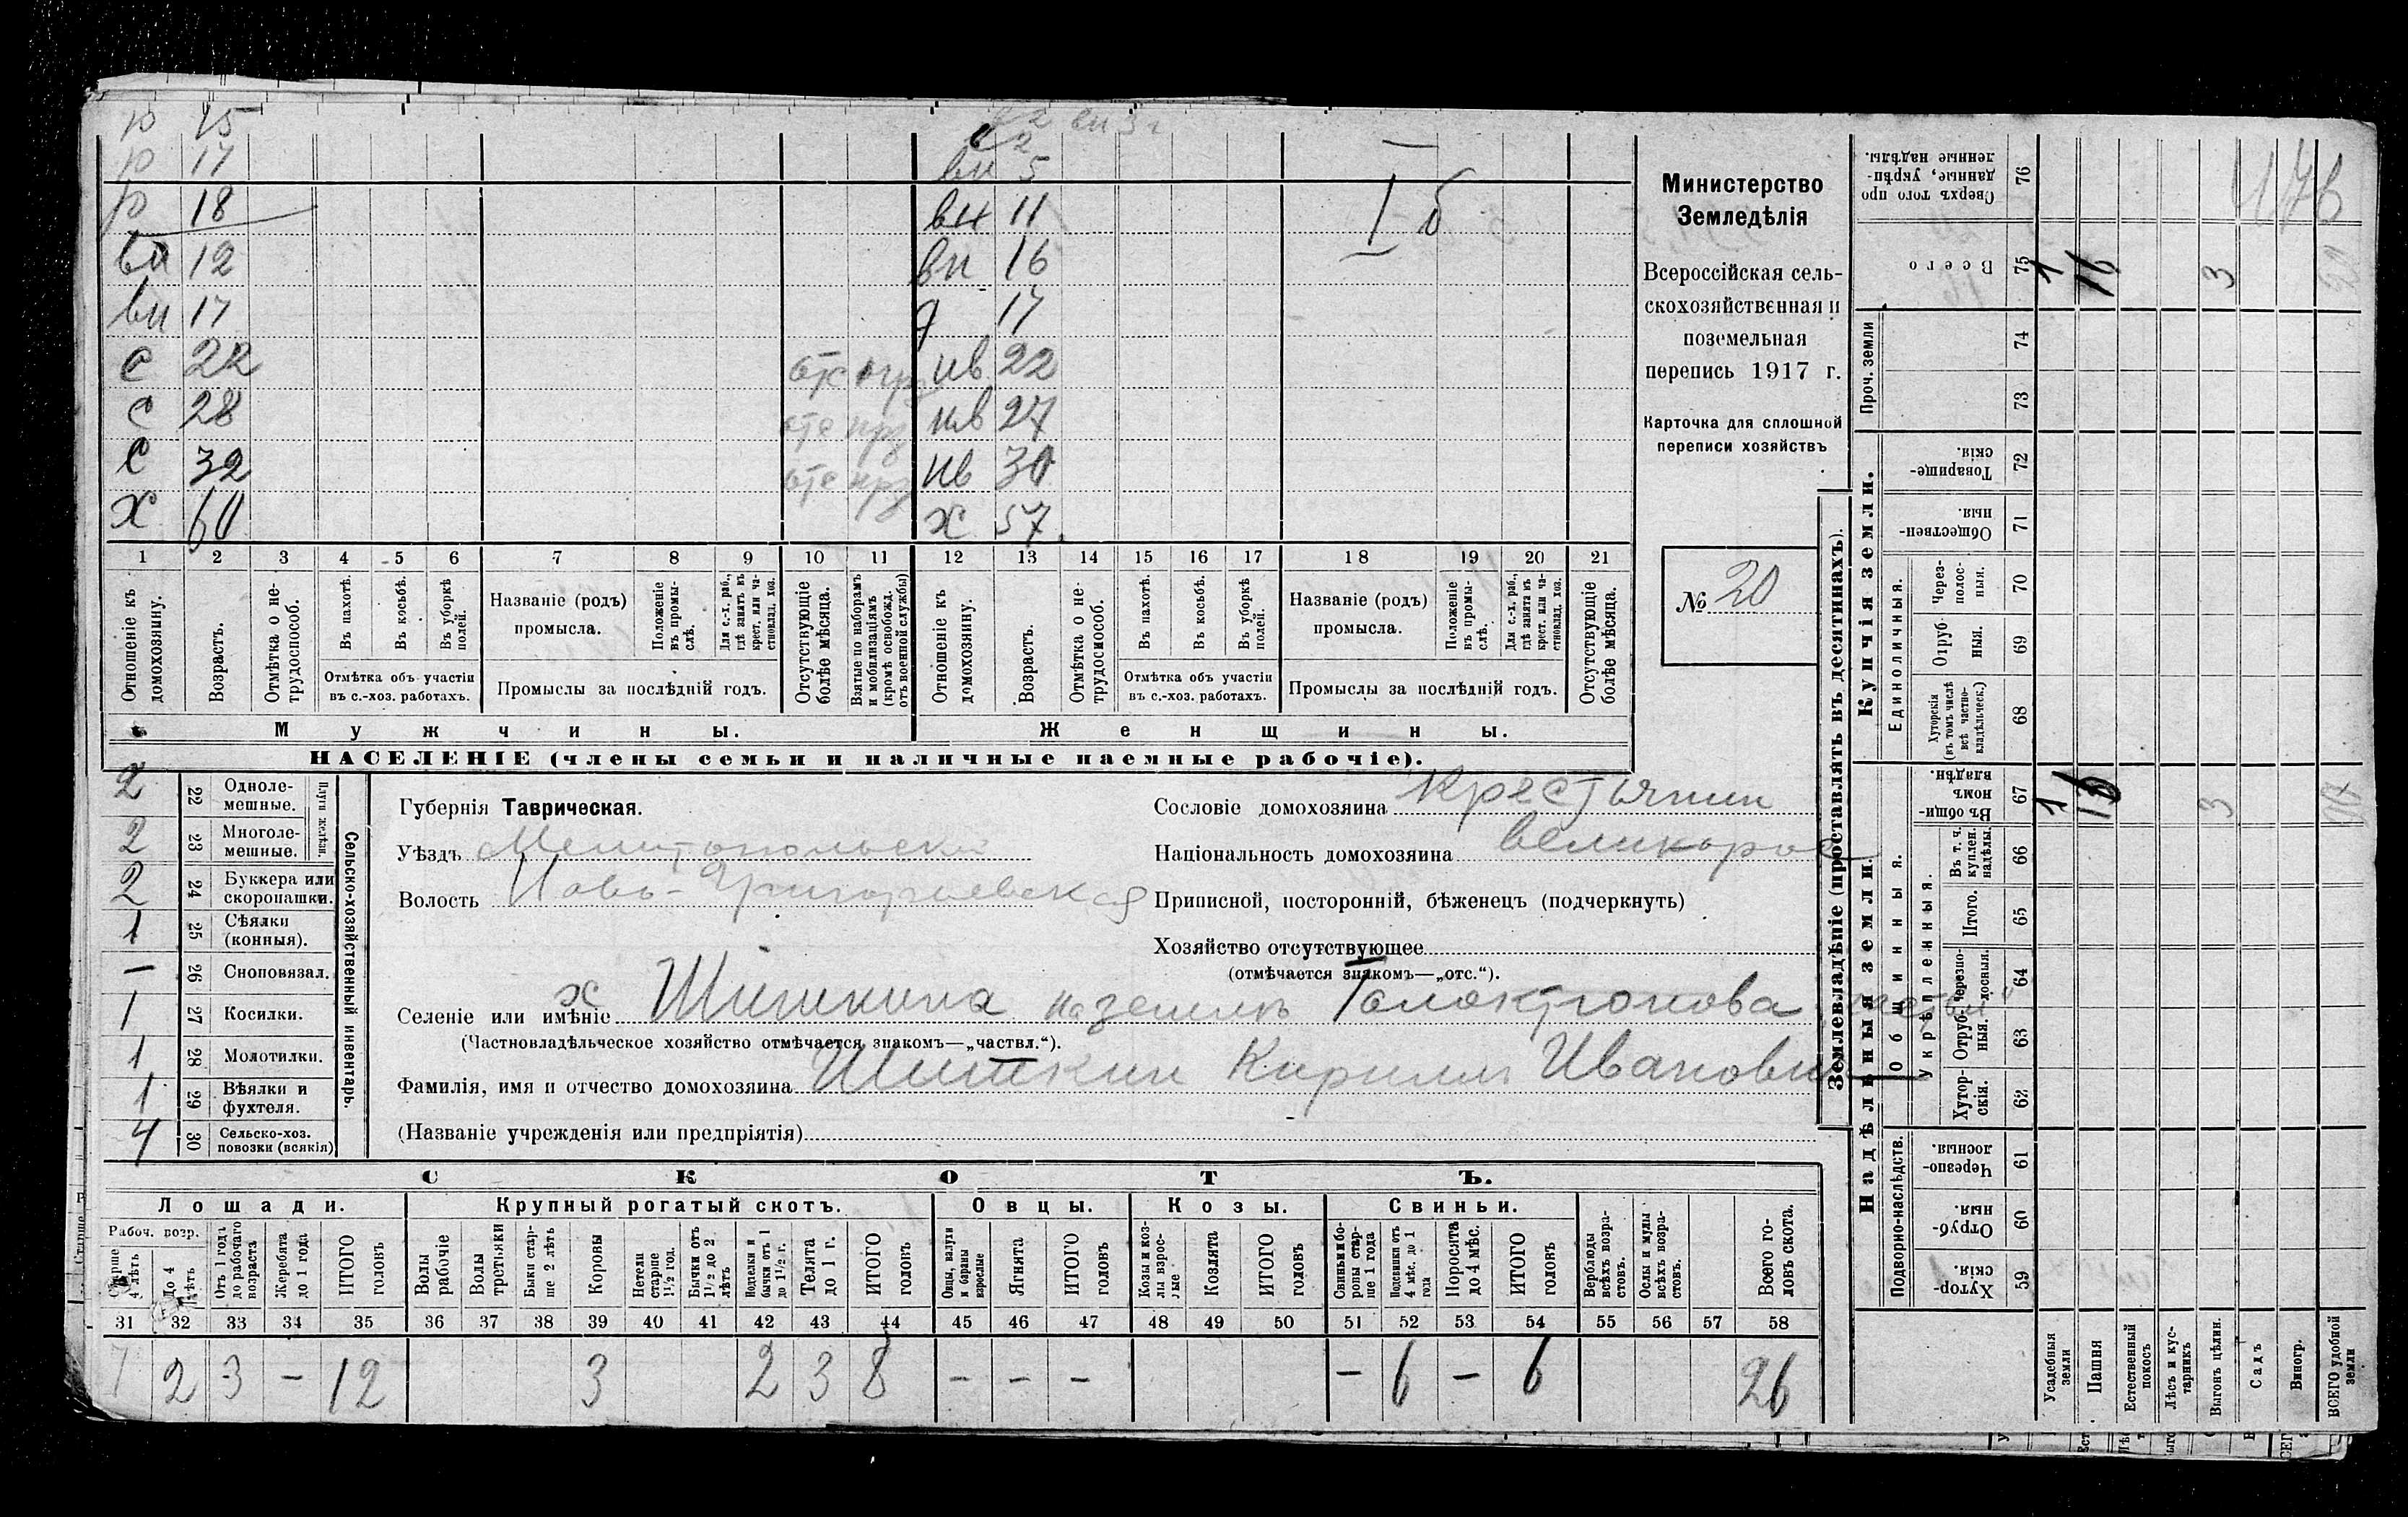 р 15
р 17
р 18
вн 12
вн 17
с 22 отс
с 28 отс
с 32 отс
х 60
2 вн 3 г
2
вн 5
вн 11
вн 16
д 17
нв 22
нв 27
нв 30
х 57
I б
1 2 3 4 5 6 7 8 9 10 11 12 13 14 15 16 17 18 19 20 21
Отношеніе къ домохозяину.
Возрастъ.
Отмѣтка о нетрудоспособ.
Въ пахотѣ.
Въ косьбѣ.
Въ уборкѣ полей.
Отмѣтка объ участіи въ с.-хоз. работахъ.
Названіе (родъ) промысла.
Положеніе въ промыслѣ.
Для с.-х. раб., гдѣ занятъ въ крест. или частновлад. хоз.
Промыслы за послѣдній годъ.
Отсутствующіе болѣе мѣсяца.
Взятые по наборамъ и мобилизаціямъ (кромѣ освобожд. отъ военной службы)
Отношеніе къ домохозяину.
Возрастъ.
Отмѣтка о нетрудоспособ.
Въ пахотѣ.
Въ косьбѣ.
Въ уборкѣ полей.
Отмѣтка объ участіи въ с.-хоз. работахъ.
Названіе (родъ) промысла.
Положеніе въ промыслѣ.
Для с.-х. раб., гдѣ занята въ крест. или частновлад. хоз.
Промыслы за послѣдній годъ.
Отсутствующіе болѣе мѣсяца.
Мужчины.
Женщины.
НАСЕЛЕНІЕ (члены семьи и наличные наемные рабочіе).
Министерство
Земледѣлія
Всероссійская сель-
скохозяйственная и
поземельная
перепись 1917 г.
Карточка для сплошной
переписи хозяйствъ
№ 20
Сельско-хозяйственный инвентарь.
Плуги желѣзн.
2 22 Одноле-
мешные.
2 23 Многоле-
мешные.
2 24 Буккера или
скоропашки.
1 25 Сѣялки
(конныя).
— 26 Сноповязал.
1 27 Косилки.
1 28 Молотилки.
1 29 Вѣялки и
фухтеля.
4 30 Сельско-хоз.
повозки (всякія)
Губернія Таврическая.
Уѣздъ Мелитопольскій
Волость Ново-Григорьевская
Сословіе домохозяина крестьянин
Національность домохозяина великорос
Приписной, посторонній, бѣженецъ (подчеркнуть)
Хозяйство отсутствующее
(отмѣчается знакомъ—„отс.“).
Селеніе или имѣніе х Шишкина на землѣ
(Частновладѣльческое хозяйство отмѣчается знакомъ—„частвл.“).
Фамилія, имя и отчество домохозяина Шишкин Кирилл Иванович
(Названіе учрежденія или предпріятія)
СКОТЪ.
Лошади.
Рабоч. возр.
Старше 4 лѣтъ
До 4 лѣтъ
Отъ 1 года до рабочаго возраста
Жеребята до 1 года
ИТОГО головъ
Крупный рогатый скотъ.
Волы рабочіе
Волы третьяки
Быки старше 2 лѣтъ
Коровы
Нетели старше 1½ год.
Бычки отъ 1½ до 2 лѣтъ
Подтелки и бычки отъ 1 до 1½ г.
Телята до 1 г.
ИТОГО головъ
Овцы.
Овцы, валухи и бараны взрослые
Ягнята
ИТОГО головъ
Козы.
Козы и козлы взрослые
Козлята
ИТОГО головъ
Свиньи.
Свиньи и боровы старше 1 года
Подсвинки отъ 4 мѣс. до 1 года
Поросята до 4 мѣс.
ИТОГО головъ
Верблюды всѣхъ возрастовъ.
Ослы и мулы всѣхъ возрастовъ.
Всего головъ скота.
31 32 33 34 35 36 37 38 39 40 41 42 43 44 45 46 47 48 49 50 51 52 53 54 55 56 57 58
7 2 3 — 12 3 2 3 8 — — — — 6 — 6 26
Землевладѣніе (проставлять въ десятинахъ).
Купчія земли.
Надѣльныя земли.
Сверхъ того проданные, укрѣпленные надѣлы. 76
Всего 75 1 16 3
Проч. земли 74 73
Товарищескія. 72
Общественныя. 71
Единоличныя.
Черезполосныя. 70
Отрубныя. 69
Хуторскія (въ томъ числѣ всѣ частновладѣльческ.) 68
Общинныя.
Въ общинномъ владѣн. 67 1 3
Укрѣпленныя.
Въ т. ч. куплен. надѣлы. 66
Итого. 65
Черезполосныя. 64
Отрубныя. 63
Хуторскія. 62
Подворно-наслѣдств.
Черезполосныя 61
Отрубныя. 60
Хуторскія. 59
Усадебныя земли
Пашня
Естественный покосъ
Лѣсъ и кустарникъ
Выгонъ цѣлин.
Садъ
Виногр.
ВСЕГО удобной земли